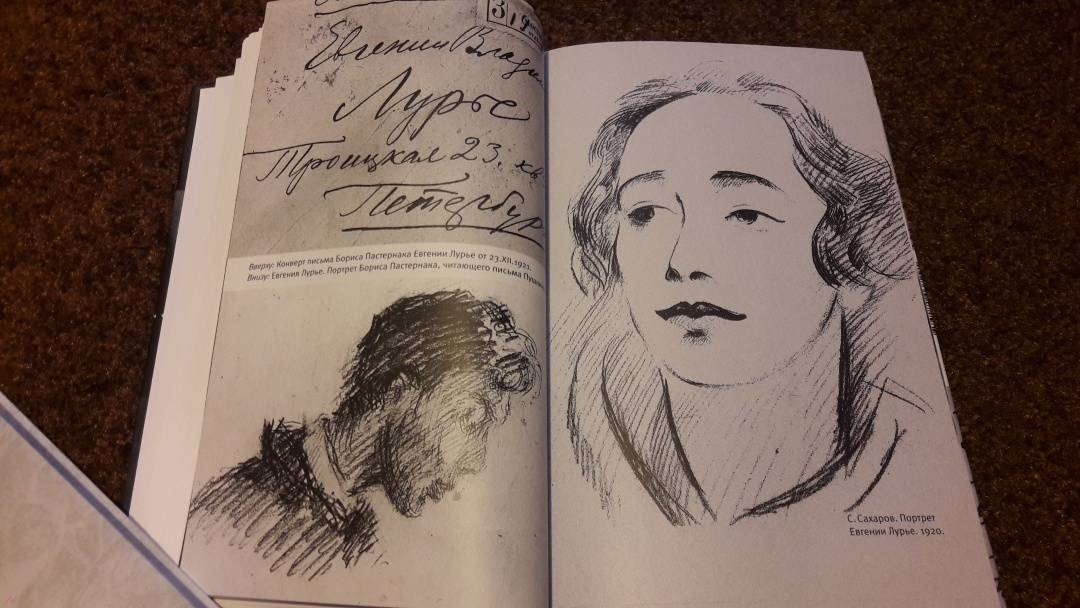 Евгении Влади
Лурье
Троицкая 23. кв
Петербур
Вверху: Конверт письма Бориса Пастернака Евгении Лурье от 23.XII.1921.
Внизу: Евгения Лурье. Портрет Бориса Пастернака, читающего письма
С. Сахаров. Портрет
Евгении Лурье. 1920.